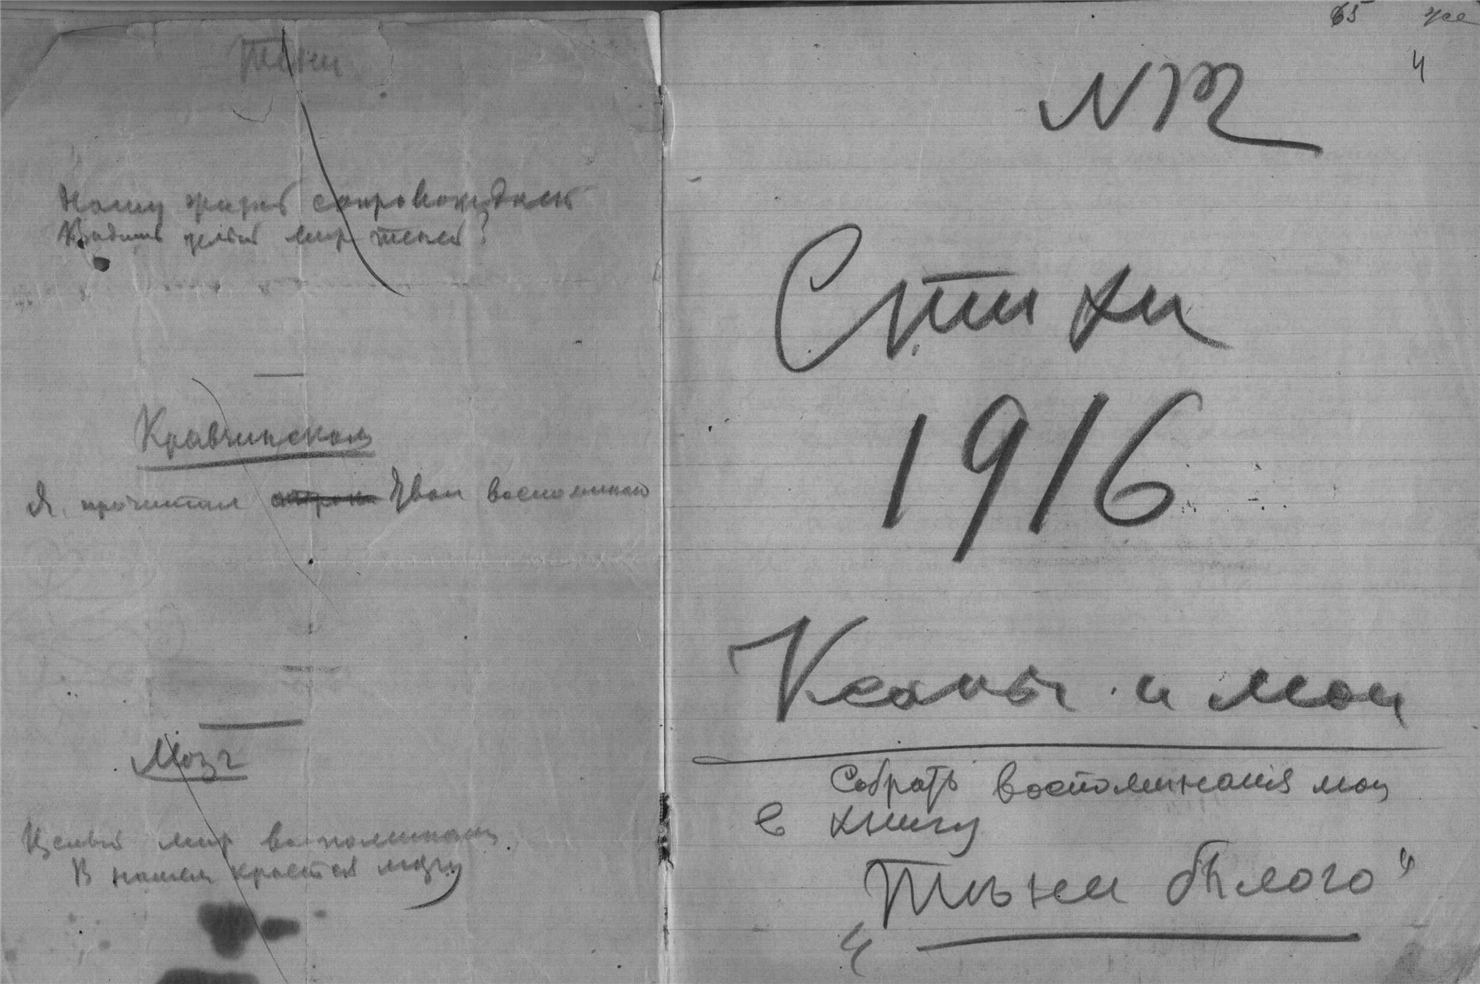 Тени
Нашу жизнь сопровождает
целый мир теней?
Кравчинском
Я прочитал твои воспоминаю
Мозг
Целый мир воспоминаний
В нашем кроется мозгу
65
4
Стихи
1916
Ксаны и мои
Собрать воспоминания мои
в книгу
„Тѣни былого“